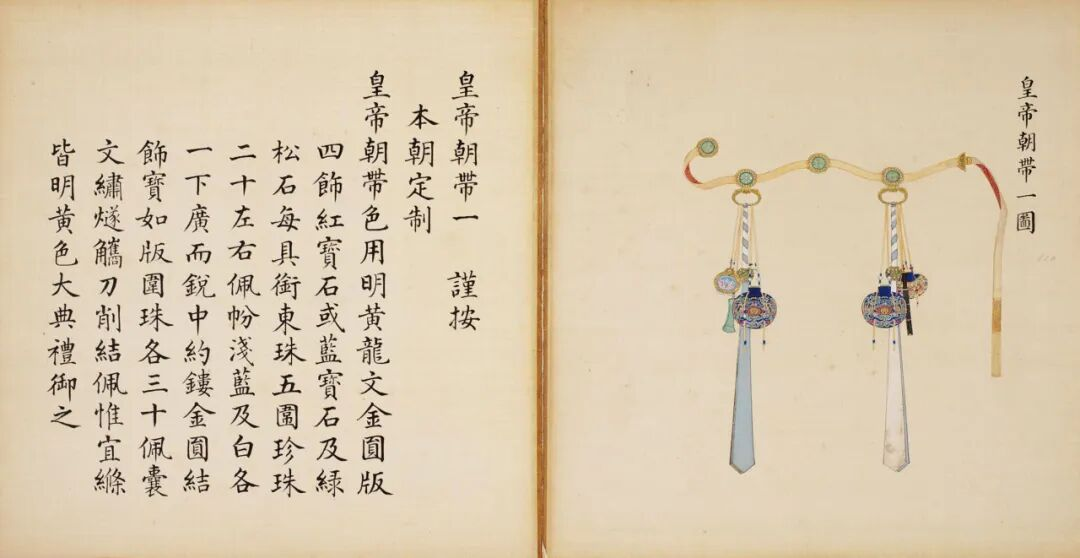 皇帝朝帶一圖
皇帝朝帶一　謹按
本朝定制
皇帝朝帶色用明黃龍文金圓版
四飾紅寶石或藍寶石及綠
松石每具銜東珠五圍珍珠
二十左右佩帉淺藍及白各
一下廣而銳中約鏤金圓結
飾寶如版圍珠各三十佩囊
文繡燧觿刀削結佩惟宜絛
皆明黃色大典禮御之